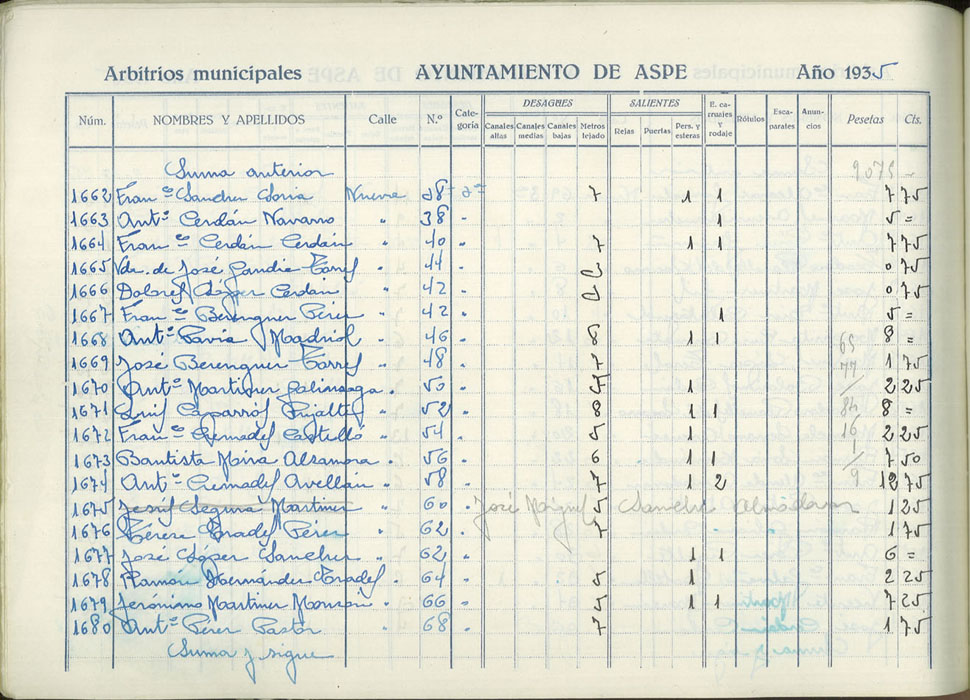 Arbitrios municipales AYUNTAMIENTO DE ASPE Año 1935
Núm. NOMBRES Y APELLIDOS Calle N.º Categoría DESAGÜES Canales altas Canales medias Canales bajas Metros tejado SALIENTES Rejas Puertas Pers. y esteras E. carruajes y rodaje Rótulos Escaparates Anuncios Pesetas Cts.
Suma anterior 9075
1662 Franco Sanchez Soria Nueva 38 2ª 7 1 1 7 75
1663 Antº Cerdán Navarro " 38 " 1 5 =
1664 Franco Cerdán Cerdán " 40 " 7 1 1 7 75
1665 Vda. de José Gandia Torres " 44 " 0 75
1666 Dolores López Cerdán " 42 " 0 75
1667 Franco Berenguer Pérez " 42 " 1 5 =
1668 Antº Pavia Madriol " 46 " 8 1 8 =
1669 José Berenguer Torres " 48 " 7 1 75
1670 Antº Martinez Galinsoga " 50 " 5 1 2 25
1671 Luis Caparrós Pujalte " 52 " 8 1 1 8 =
1672 Franco Cremades Castelló " 54 " 5 1 2 25
1673 Bautista Mira Alzamora " 56 " 6 1 1 7 50
1674 Antº Cremades Avellán " 58 " 7 1 2 12 75
1675 Jesús Segura Martinez " 60 " José Miguel Sanchez Almodovar 5 1 25
1676 Prades Pérez " 62 " 7 1 75
1677 José López Sanchez " 62 " 1 1 6 =
1678 Ramón Hernández Prades " 64 " 5 1 2 25
1679 Jerónimo Martinez Monzón " 66 " 5 1 1 7 25
1680 Antº Pérez Pastor " 68 " 7 1 75
Suma y sigue